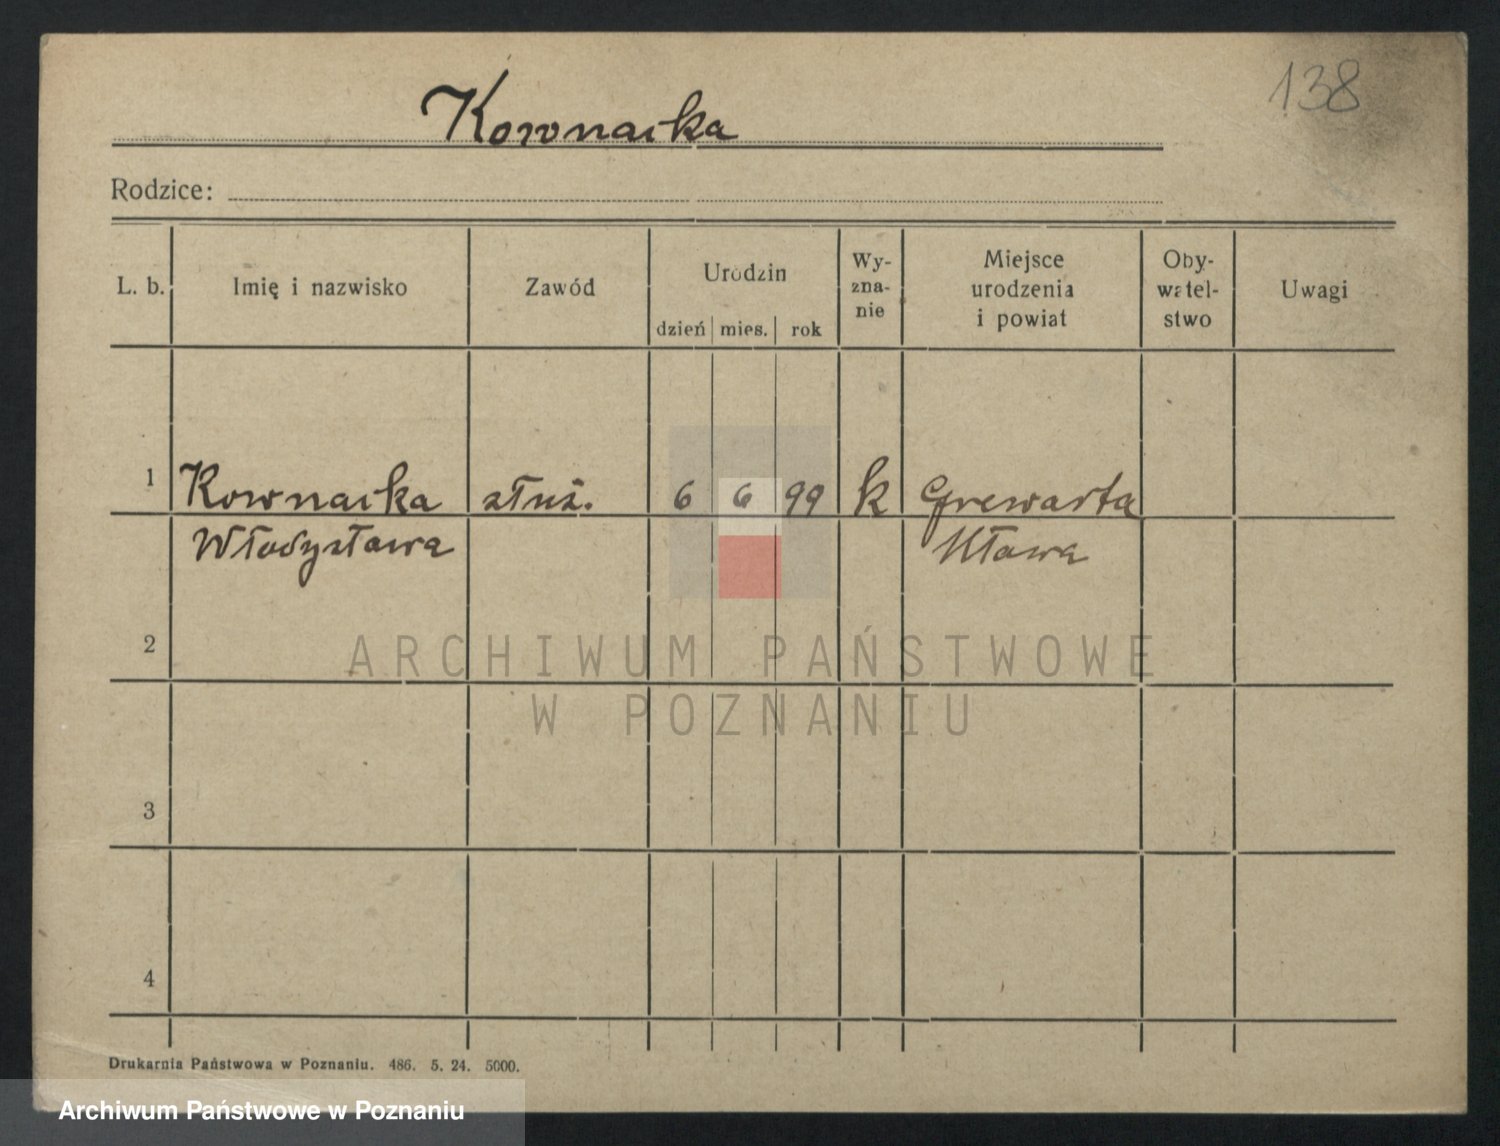 138
Kownacka
Rodzice:
L. b. Imię i nazwisko Zawód Urodzin dzień mies. rok Wy-zna-nie Miejsce urodzenia i powiat Oby-watel-stwo Uwagi
1 Kownacka służ. 6 6 99 k
Włodysława Mława
2
3
4
ARCHIWUM PAŃSTWOWE
W POZNANIU
Drukarnia Państwowa w Poznaniu. 486. 5. 24. 5000.
Archiwum Państwowe w Poznaniu